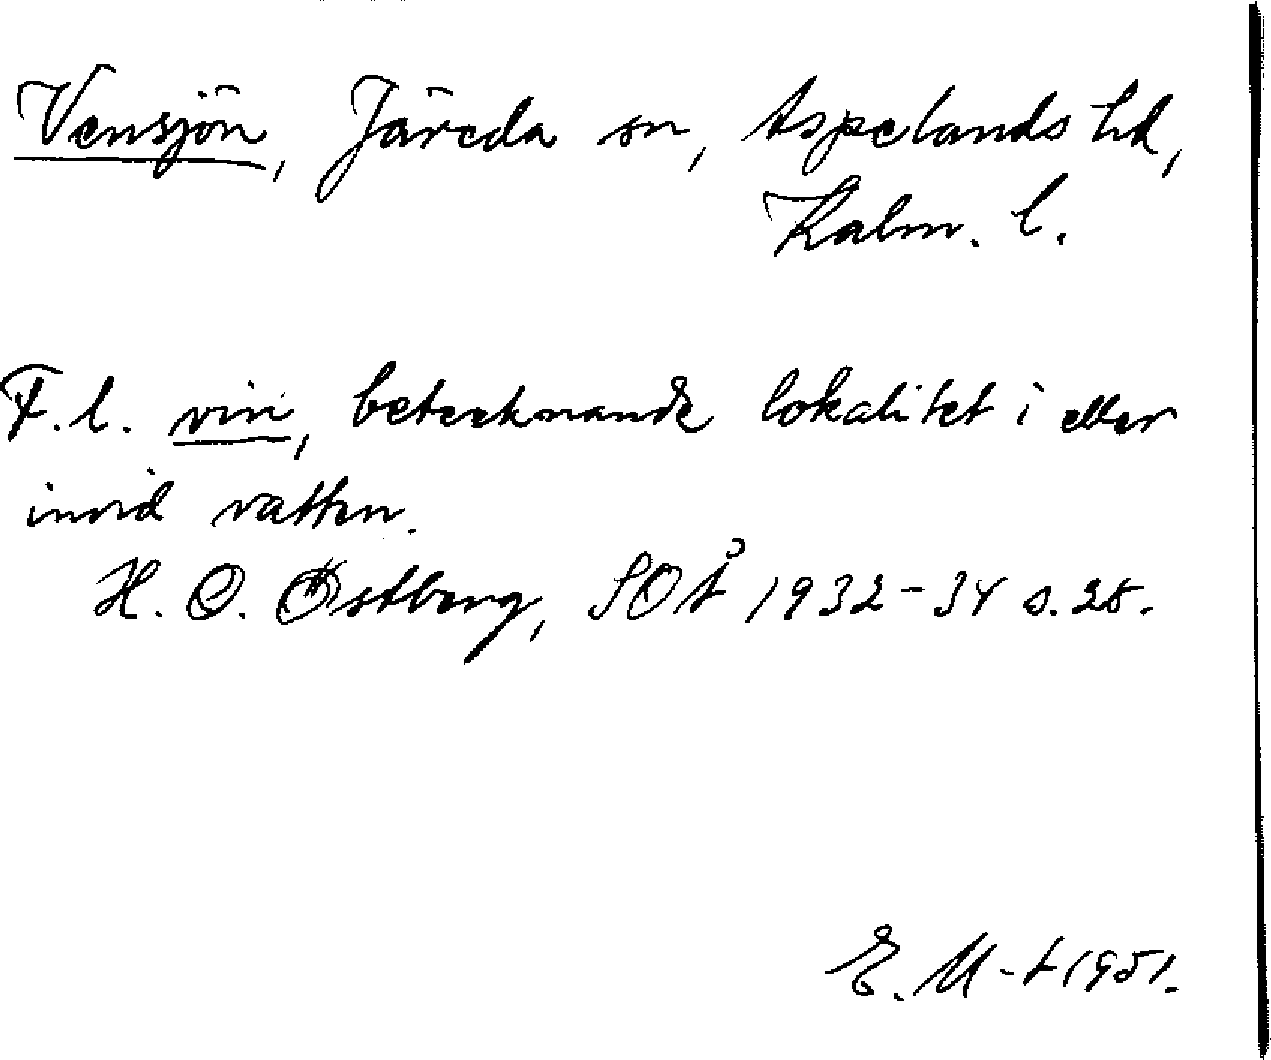 Vensjön, Järeda sn, Aspelands hd,
Kalm. l.
F. l. vin, betecknande lokalitet i eller
invid vatten.
H. O. Östberg, SOÅ 1932-34 s. 28.
E. M-t 1951.